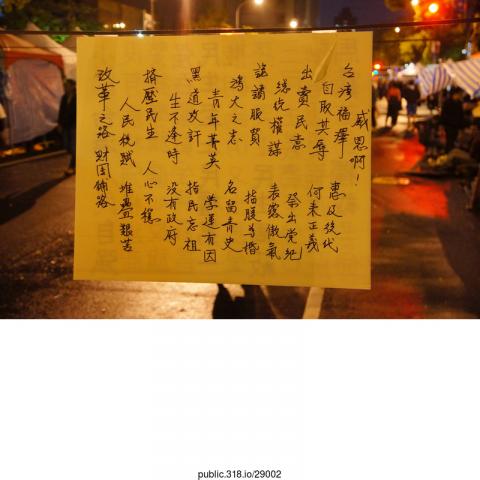 感恩啊!
台灣福澤 惠及後代
自取其辱 何來正義
出賣民意 祭出党紀
總统權謀 表露傲氣
服貿 指腹為婚
鴻大之志 名留青史
青年菁英 學運有因
黑道攻訐 指民忘祖
生不逢時 沒有政府
擠壓民生 人心不穩
人民稅賦 堆疊艱苦
改革之路 財团鋪路
public.318.io/29002